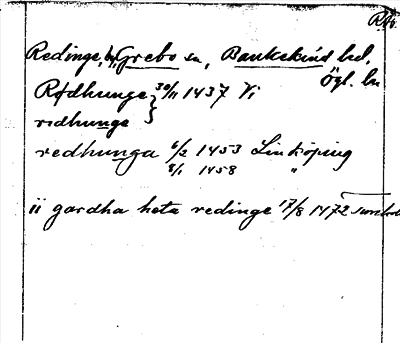 Redinge, by, Grebo sn, Bankekinds hd,
Ögl. ln
Rødhunge 30/11 1437 Vi
rødhunge
redhunga 6/2 1453 Linköping
8/1 1458 "
ii gardha heta redinge 17/8 1472